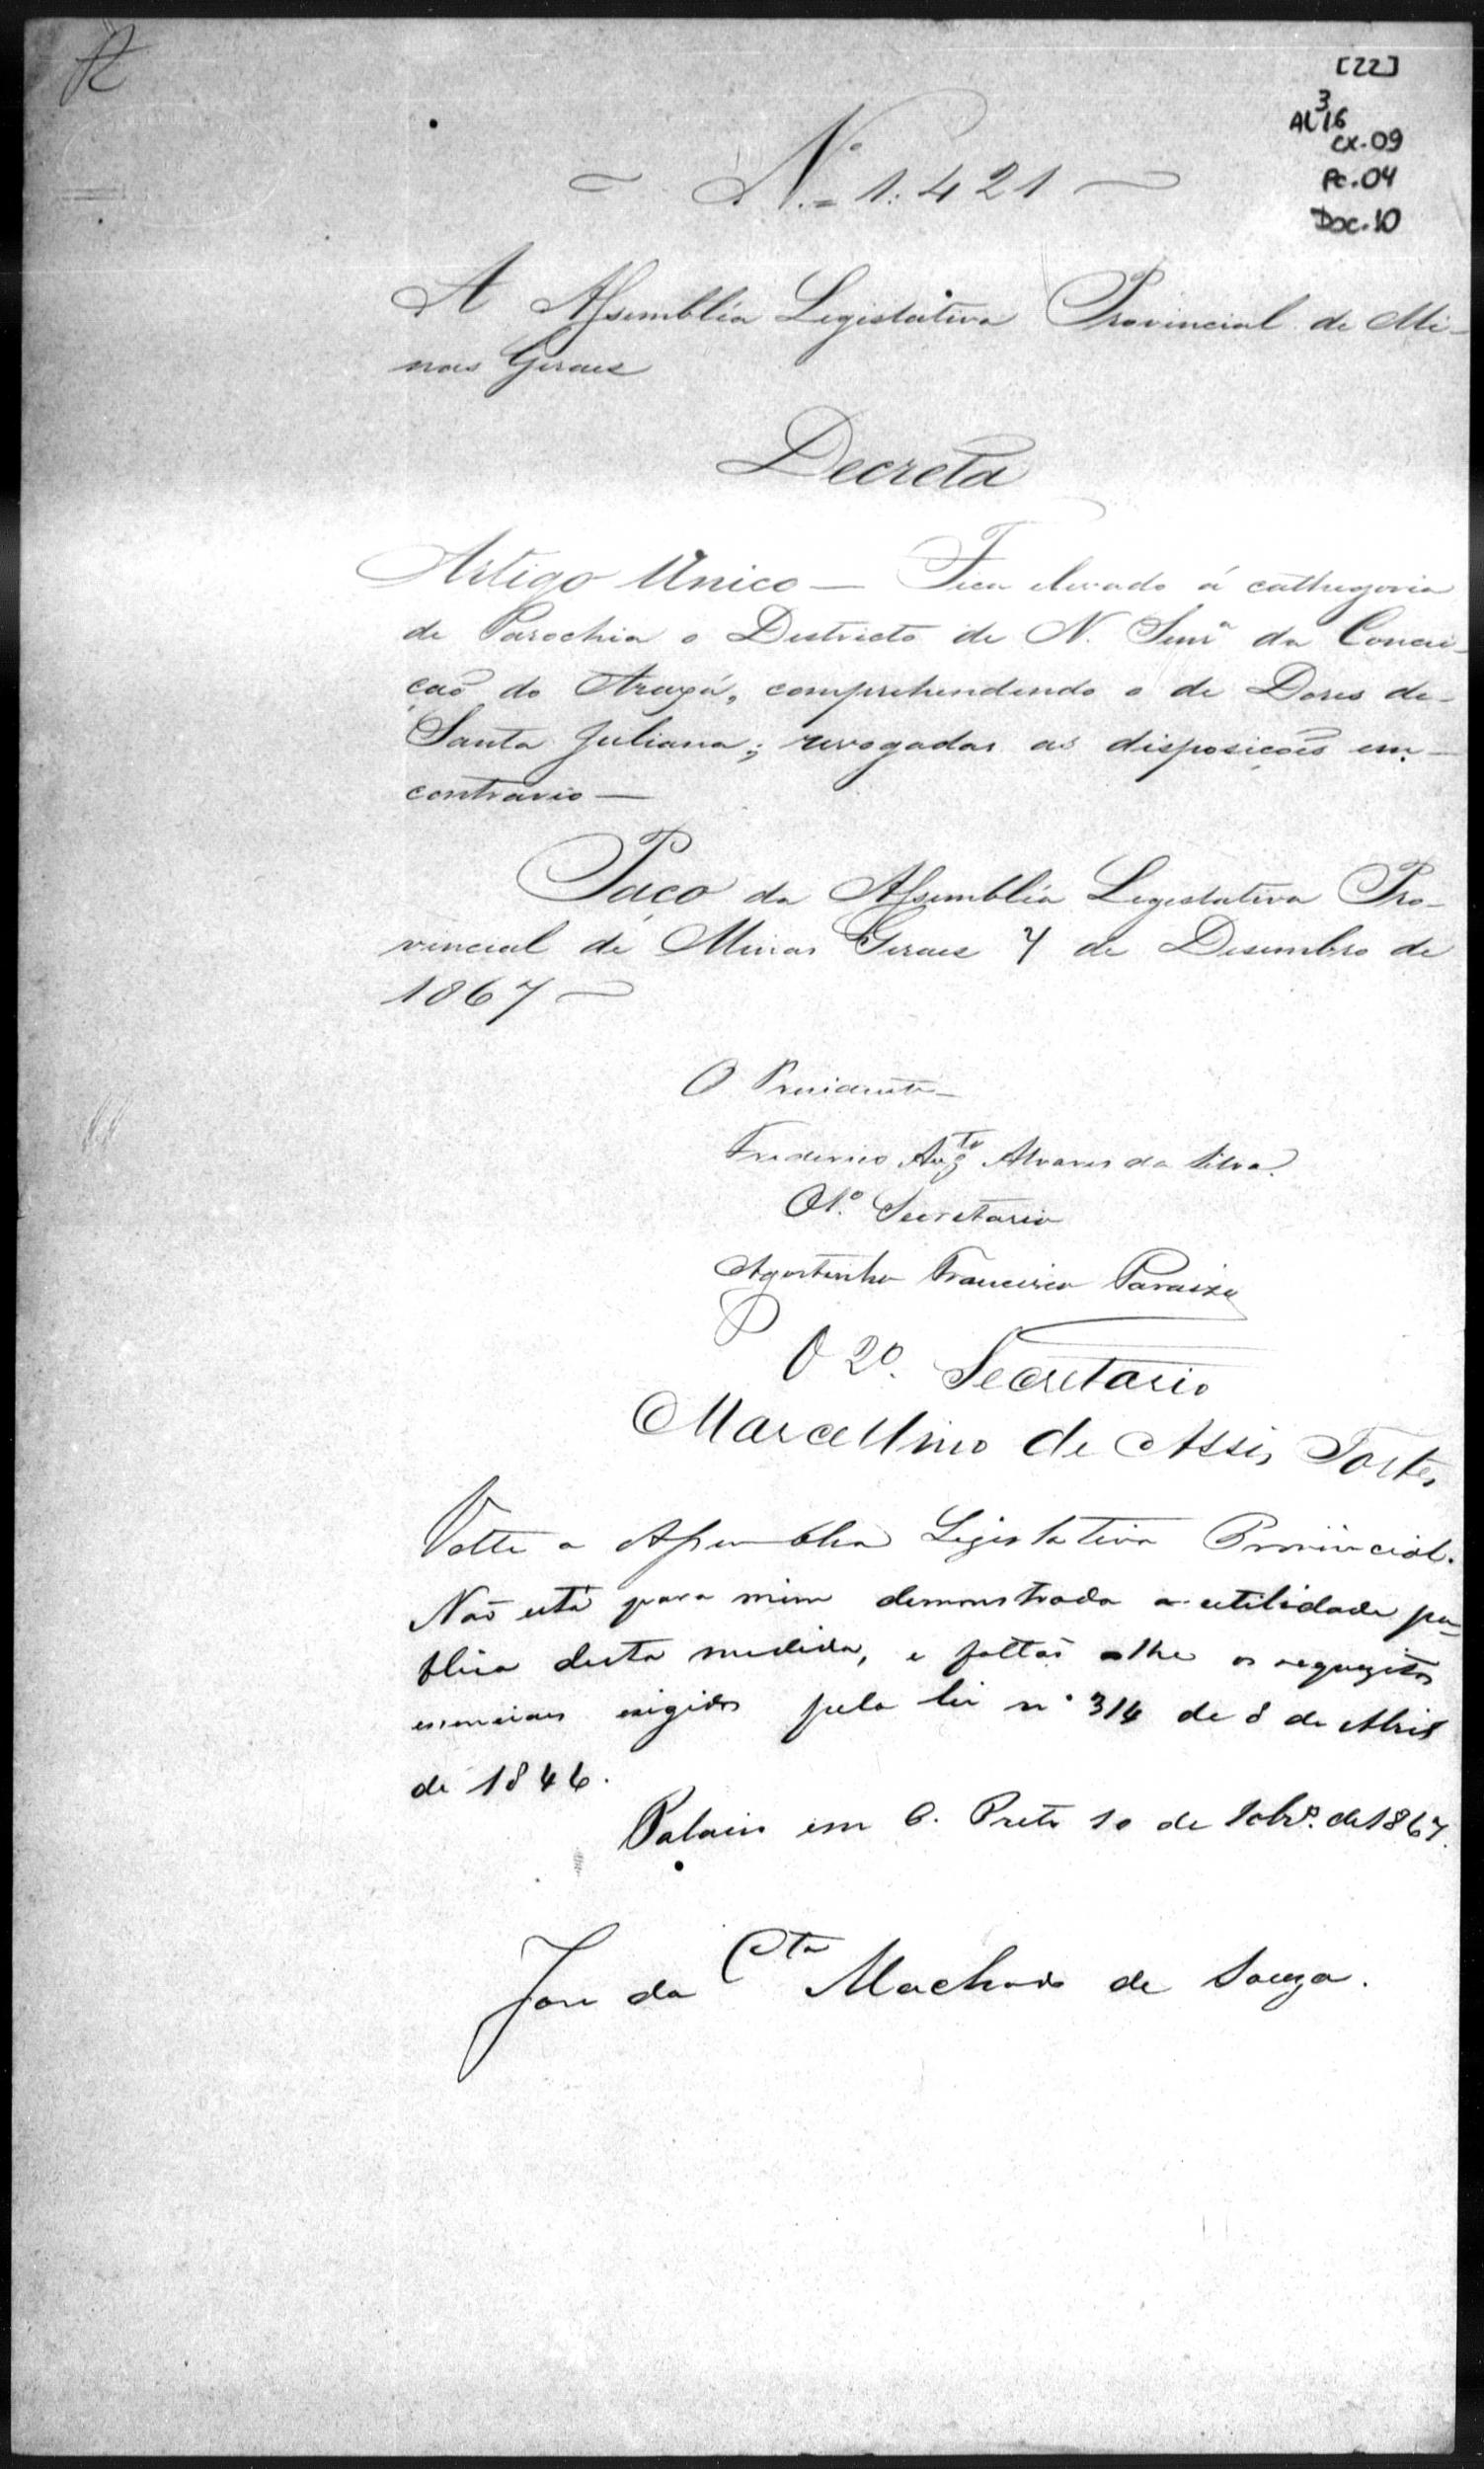 [22]
3
AL 16
CX-09
PC-04
Doc-10
N.º 1:421
A Assembléa Legislativa Provincial de Mi-
nas Geraes
Decreta
Artigo Unico — Fica elevado á cathegoria
de Parochia o Districto de N. Senrª da Concei-
ção do Araxá, comprehendendo o de Dores de
Santa Juliana; revogadas as disposições em
contrario —
Paço da Assembléa Legislativa Pro-
vincial de Minas Geraes 7 de Desembro de
1867 —
O Presidente
Frederico Augto Alvares da Silva.
O 1.º Secretario
Agostinho Francisco Paraizo
O 2º. Secretario
Marcellino de Assis Tostes
Volte a Assemblea Legislativa Provincial.
Não está para mim demonstrada a utilidade pu-
blica desta medida, e faltão lhe os requezitos
essenciaes exigidos pela lei nº 314 de 8 de Abril
de 1846.
Palacio em O. Preto 10 de 10brº. de 1867.
José da Cta Machado de Souza.